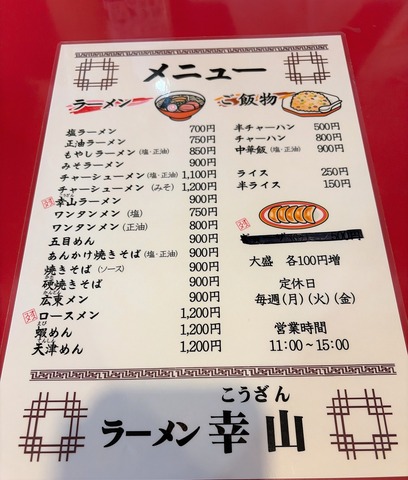 メニュー
ラーメン
塩ラーメン 700円
正油ラーメン 750円
もやしラーメン (塩・正油) 850円
みそラーメン 900円
チャーシューメン (塩・正油) 1,100円
チャーシューメン (みそ) 1,200円
幸山ラーメン 900円
ワンタンメン (塩) 750円
ワンタンメン (正油) 800円
五目めん 900円
あんかけ焼きそば (塩・正油) 900円
焼きそば (ソース) 900円
硬焼きそば 900円
広東メン 900円
ロースメン 1,200円
蝦めん 1,200円
天津めん 1,200円
ご飯物
半チャーハン 500円
チャーハン 800円
中華飯 (塩・正油) 900円
ライス 250円
半ライス 150円
大盛 各100円増
定休日
毎週(月)(火)(金)
営業時間
11:00~15:00
こうざん
ラーメン 幸山